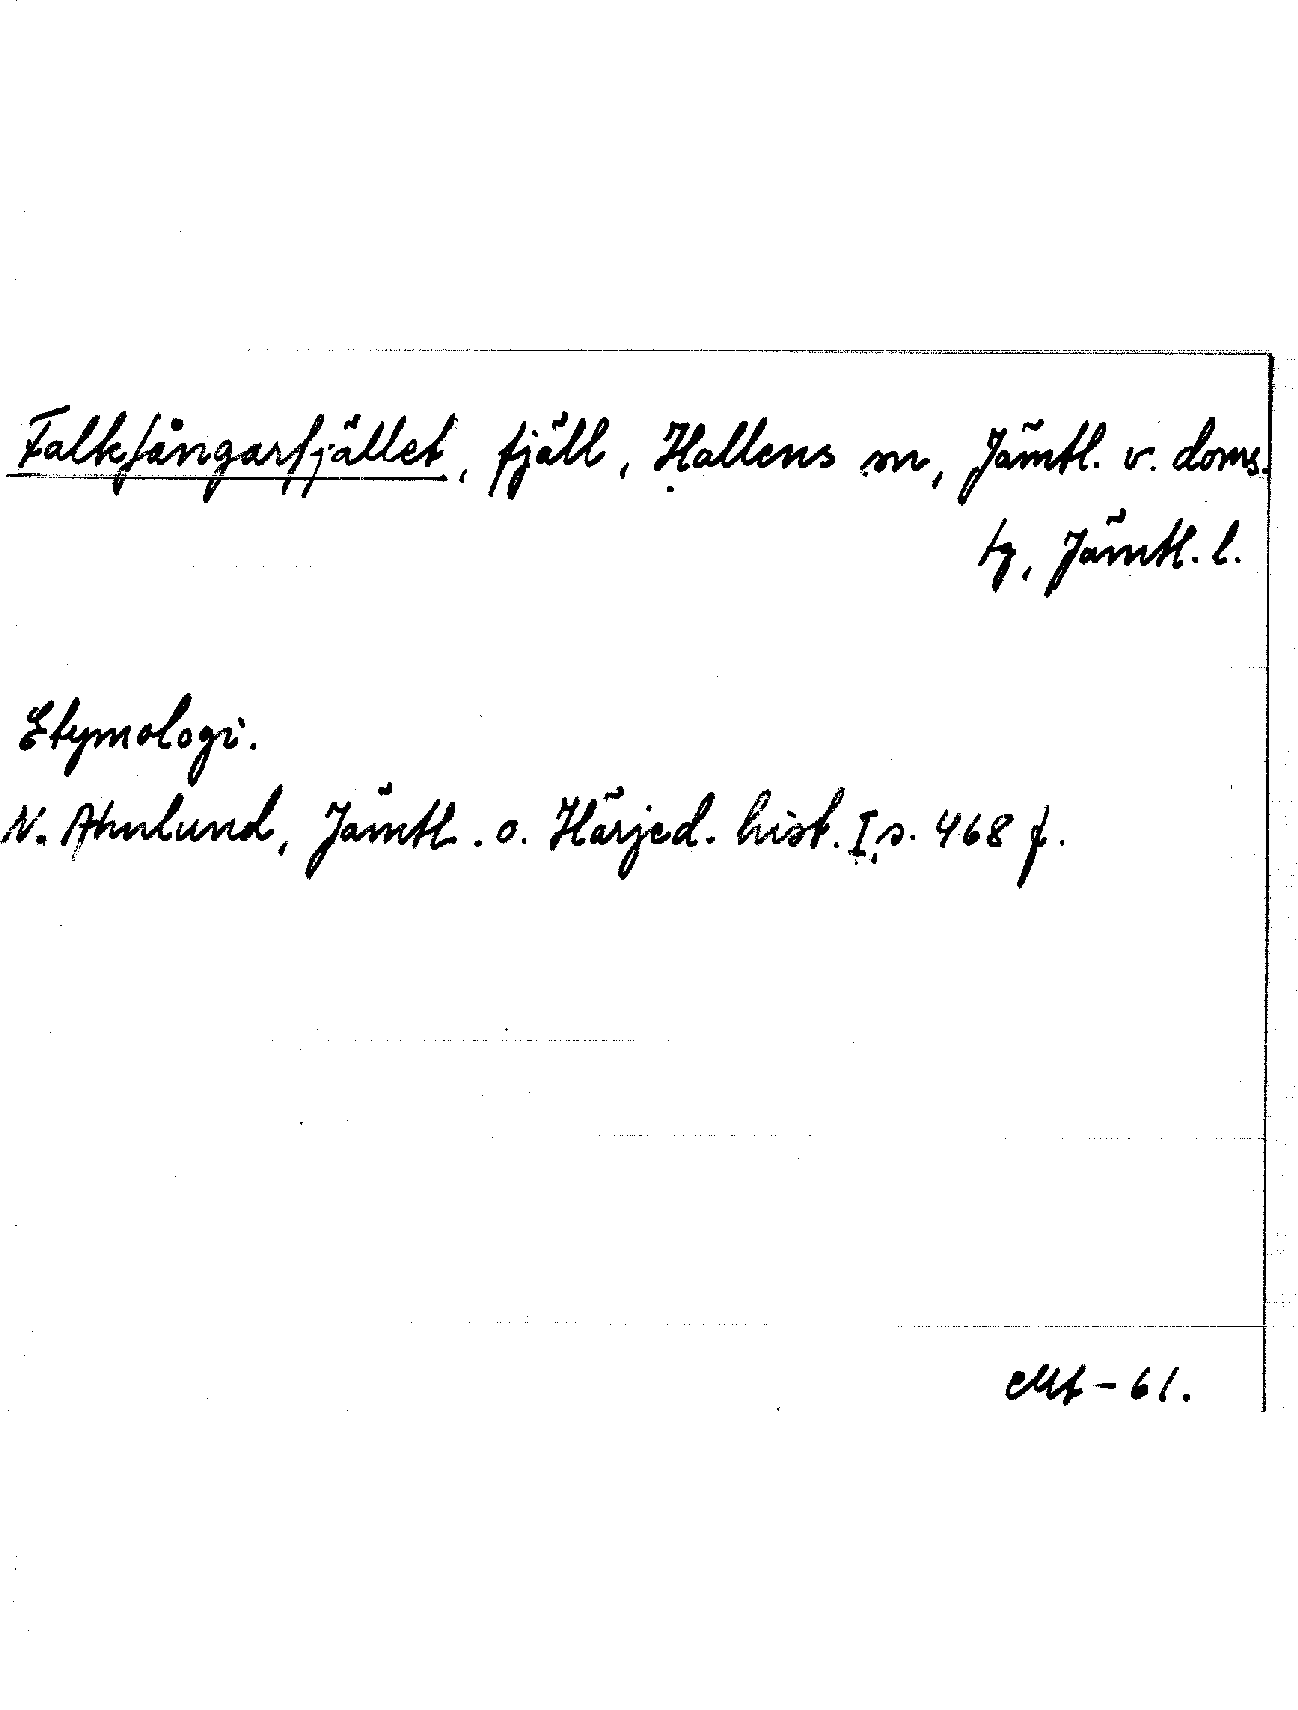 Falkfångarfjället, fjäll, Hallens sn, Jämtl. v. doms.
tg, Jämtl. l.
Etymologi.
N. Ahnlund, Jämtl. o. Härjed. hist. I, s. 468 f.
- 61.